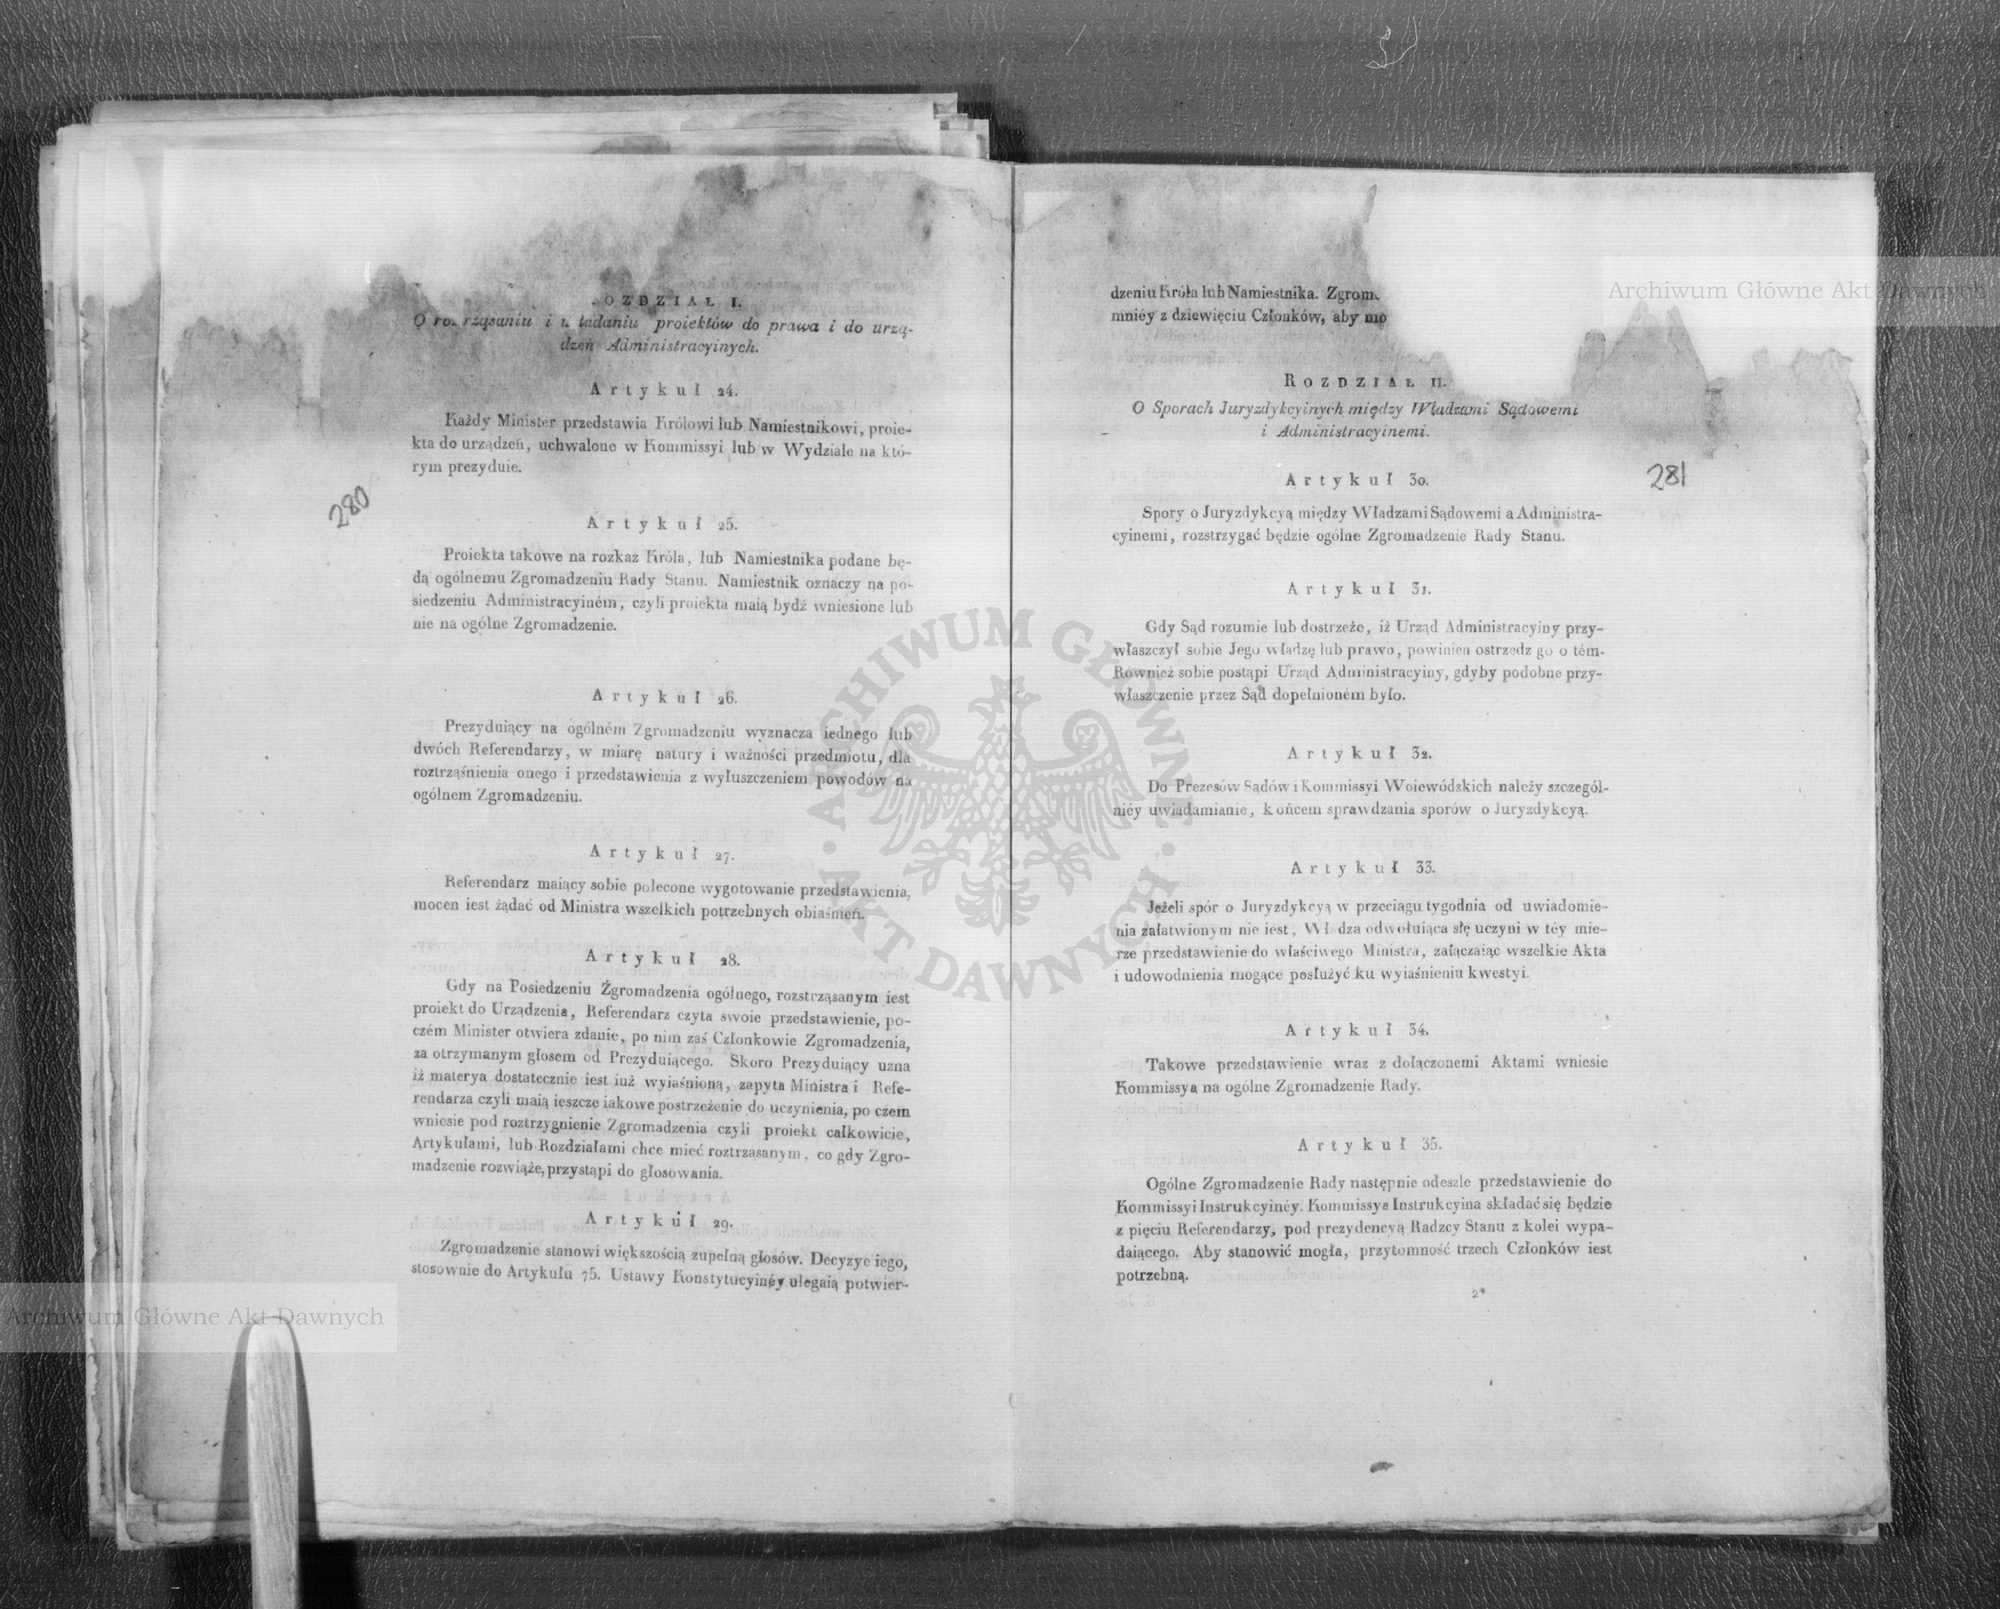 OZDZIAŁ I.
O roz rząsaniu i u ładaniu proiektów do prawa i do urzą-
dzeń Administracyinych.
Artykuł 24.
Każdy Minister przedstawia Królowi lub Namiestnikowi, proie-
kta do urządzeń, uchwalone w Kommissyi lub w Wydziale na któ-
rym prezyduie.
280
Artykuł 25.
Proiekta takowe na rozkaz Króla, lub Namiestnika podane bę-
dą ogólnemu Zgromadzeniu Rady Stanu. Namiestnik oznaczy na po-
siedzeniu Administracyiném, czyli proiekta maią bydź wniesione lub
nie na ogólne Zgromadzenie.
Artykuł 26.
Prezyduiący na ogólném Zgromadzeniu wyznacza iednego lub
dwóch Referendarzy, w miarę natury i ważności przedmiotu, dla
roztrząśnienia onego i przedstawienia z wyłuszczeniem powodów na
ogólnem Zgromadzeniu.
Artykuł 27.
Referendarz maiący sobie polecone wygotowanie przedstawienia,
mocen iest żądać od Ministra wszelkich potrzebnych obiaśnień.
Artykuł 28.
Gdy na Posiedzeniu Zgromadzenia ogólnego, rozstrząsanym iest
proiekt do Urządzenia, Referendarz czyta swoie przedstawienie, po-
czém Minister otwiera zdanie, po nim zaś Członkowie Zgromadzenia,
za otrzymanym głosem od Prezyduiącego. Skoro Prezyduiący uzna
iż materya dostatecznie iest iuż wyiaśnioną, zapyta Ministra i Refe-
rendarza czyli maią ieszcze iakowe postrzeżenie do uczynienia, po czem
wniesie pod roztrzygnienie Zgromadzenia czyli proiekt całkowicie,
Artykułami, lub Rozdziałami chce mieć roztrzasanym, co gdy Zgro-
madzenie rozwiąże, przystąpi do głosowania.
Artykuł 29.
Zgromadzenie stanowi większością zupełną głosów. Decyzye iego,
stosownie do Artykułu 75. Ustawy Konstytucyinéy ulegaią potwier-
dzeniu Króla lub Namiestnika. Zgrom
mniéy z dziewięciu Członków, aby mo
ROZDZIAŁ II.
O Sporach Juryzdykcyinych między Władzami Sądowemi
i Administracyinemi.
281
Artykuł 30.
Spory o Juryzdykcyą między Władzami Sądowemi a Administra-
cyinemi, rozstrzygać będzie ogólne Zgromadzenie Rady Stanu.
Artykuł 31.
Gdy Sąd rozumie lub dostrzeże, iż Urząd Administracyiny przy-
właszczył sobie Jego władzę lub prawo, powinien ostrzedz go o tém.
Również sobie postąpi Urząd Administracyiny, gdyby podobne przy-
właszczenie przez Sąd dopełnioném było.
Artykuł 32.
Do Prezesów Sądów i Kommissyi Woiewódzkich należy szczegól-
niéy uwiadamianie, końcem sprawdzania sporów o Juryzdykcyą.
Artykuł 33.
Jeżeli spór o Juryzdykcyą w przeciągu tygodnia od uwiadomie-
nia załatwionym nie iest, Władza odwołuiąca się uczyni w téy mie-
rze przedstawienie do właściwego Ministra, załączaiąc wszelkie Akta
i udowodnienia mogące posłużyć ku wyiaśnieniu kwestyi.
Artykuł 34.
Takowe przedstawienie wraz z dołączonemi Aktami wniesie
Kommissya na ogólne Zgromadzenie Rady.
Artykuł 35.
Ogólne Zgromadzenie Rady następnie odeszle przedstawienie do
Kommissyi Instrukcyinéy. Kommissya Instrukcyina składać się będzie
z pięciu Referendarzy, pod prezydencyą Radzcy Stanu z kolei wypa-
daiącego. Aby stanowić mogła, przytomność trzech Członków iest
potrzebną.
2*
Archiwum Główne Akt Dawnych
Archiwum Główne Akt Dawnych
ARCHIWUM GŁÓWNE
AKT DAWNYCH